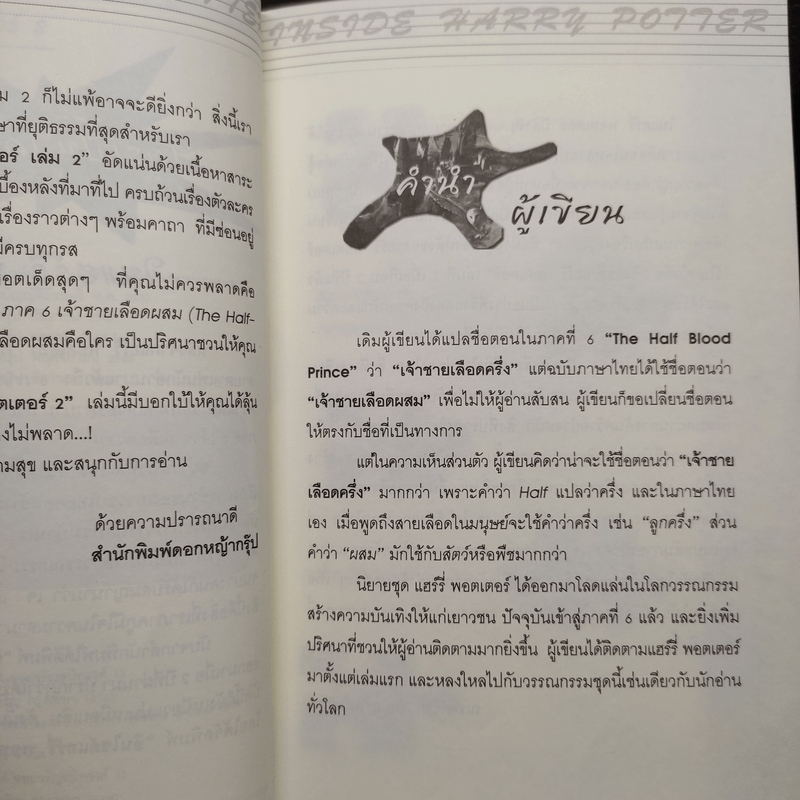 INSIDE HARRY POTTER
ม 2 ก็ไม่แพ้อาจจะดียิ่งกว่า สิ่งนี้เรา
ษาที่ยุติธรรมที่สุดสำหรับเรา
อร์ เล่ม 2” อัดแน่นด้วยเนื้อหาสาระ
เบื้องหลังที่มาที่ไป ครบถ้วนเรื่องตัวละคร
เรื่องราวต่างๆ พร้อมคาถา ที่มีซ่อนอยู่
มีครบทุกรส
พอตเด็ดสุดๆ ที่คุณไม่ควรพลาดคือ
ภาค 6 เจ้าชายเลือดผสม (The Half-
ลือดผสมคือใคร เป็นปริศนาชวนให้คุณ
ตเตอร์ 2” เล่มนี้มีบอกใบ้ให้คุณได้ลุ้น
งไม่พลาด...!
ามสุข และสนุกกับการอ่าน
ด้วยความปรารถนาดี
สำนักพิมพ์ดอกหญ้ากรุ๊ป
คำนำ
ผู้เขียน
เดิมผู้เขียนได้แปลชื่อตอนในภาคที่ 6 “The Half Blood
Prince” ว่า “เจ้าชายเลือดครึ่ง” แต่ฉบับภาษาไทยได้ใช้ชื่อตอนว่า
“เจ้าชายเลือดผสม” เพื่อไม่ให้ผู้อ่านสับสน ผู้เขียนก็ขอเปลี่ยนชื่อตอน
ให้ตรงกับชื่อที่เป็นทางการ
แต่ในความเห็นส่วนตัว ผู้เขียนคิดว่าน่าจะใช้ชื่อตอนว่า “เจ้าชาย
เลือดครึ่ง” มากกว่า เพราะคำว่า Half แปลว่าครึ่ง และในภาษาไทย
เอง เมื่อพูดถึงสายเลือดในมนุษย์จะใช้คำว่าครึ่ง เช่น “ลูกครึ่ง” ส่วน
คำว่า “ผสม” มักใช้กับสัตว์หรือพืชมากกว่า
นิยายชุด แฮร์รี่ พอตเตอร์ ได้ออกมาโลดแล่นในโลกวรรณกรรม
สร้างความบันเทิงให้แก่เยาวชน ปัจจุบันเข้าสู่ภาคที่ 6 แล้ว และยิ่งเพิ่ม
ปริศนาที่ชวนให้ผู้อ่านติดตามมากยิ่งขึ้น ผู้เขียนได้ติดตามแฮร์รี่ พอตเตอร์
มาตั้งแต่เล่มแรก และหลงใหลไปกับวรรณกรรมชุดนี้เช่นเดียวกับนักอ่าน
ทั่วโลก